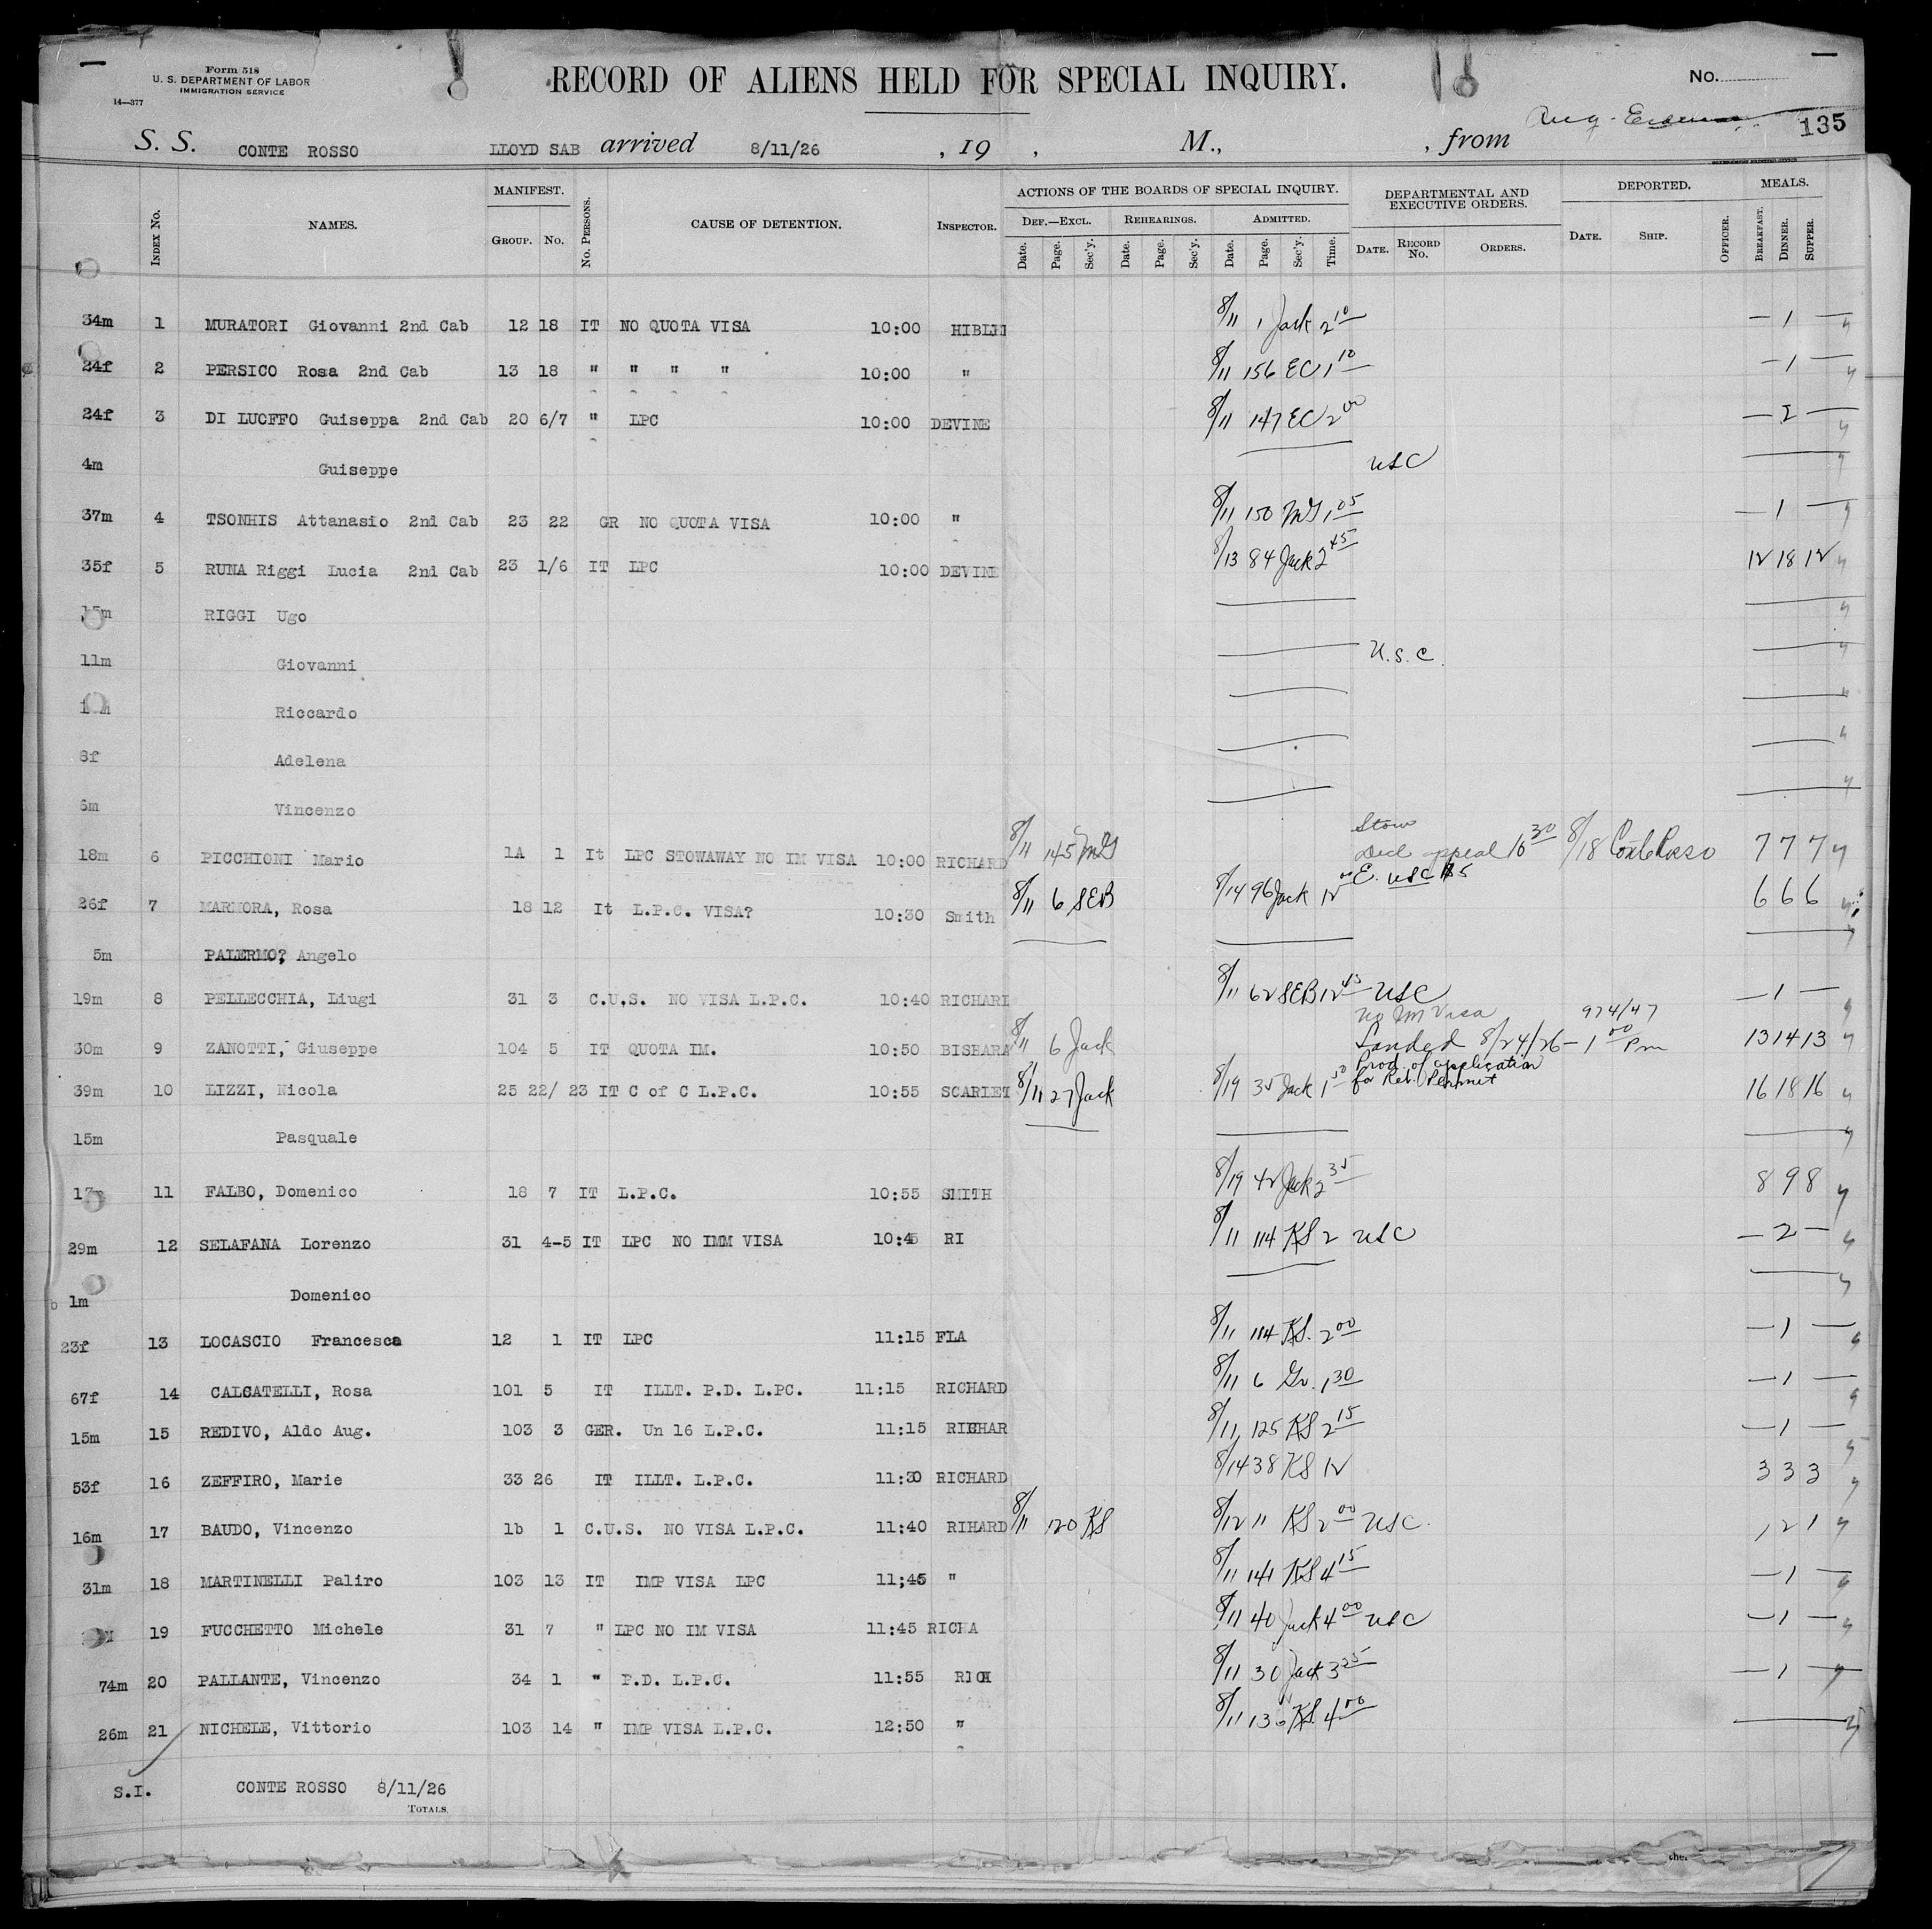 Form 518
U. S. DEPARTMENT OF LABOR
IMMIGRATION SERVICE
14—377
RECORD OF ALIENS HELD FOR SPECIAL INQUIRY.
No.
135
S. S. CONTE ROSSO LLOYD SAB arrived 8/11/26 , 19 , M., , from
INDEX No. NAMES. MANIFEST. GROUP. No. No. PERSONS. CAUSE OF DETENTION. INSPECTOR. ACTIONS OF THE BOARDS OF SPECIAL INQUIRY. DEF.—EXCL. Date. Page. Sec'y. REHEARINGS. Date. Page. Sec'y. ADMITTED. Date. Page. Sec'y. Time. DEPARTMENTAL AND EXECUTIVE ORDERS. DATE. RECORD No. ORDERS. DEPORTED. DATE. SHIP. OFFICER. MEALS. BREAKFAST. DINNER. SUPPER.
34m 1 MURATORI Giovanni 2nd Cab 12 18 IT NO QUOTA VISA 10:00 8/11 1 Jack 2 10 — 1 —
24f 2 PERSICO Rosa 2nd Cab 13 18 " " " " 10:00 " 8/11 156 EC 1 10 — 1 —
24f 3 DI LUOFFO Guiseppa 2nd Cab 20 6/7 " LPC 10:00 DEVINE 8/11 147 EC 2 00 — 2 —
4m Guiseppe USC
37m 4 TSONHIS Attanasio 2nd Cab 23 22 GR NO QUOTA VISA 10:00 " 8/11 150 MG 1 05 — 1 —
35f 5 RUNA Riggi Lucia 2nd Cab 23 1/6 IT LPC 10:00 DEVINE 8/13 84 Jack 2 45 12 18 12
RIGGI Ugo
11m Giovanni U.S.C.
Riccardo
8f Adelena
6m Vincenzo
18m 6 PICCHIONI Mario 1A 1 It LPC STOWAWAY NO IM VISA 10:00 RICHARD 8/11 145 MG Stow Decl appeal 10 30 8/18 Conte Rosso 7 7 7
26f 7 MARMORA, Rosa 18 12 It L.P.C. VISA? 10:30 Smith 8/11 6 SEB 8/14 96 Jack 12 00 E. USC 6 6 6
5m PALERMO? Angelo
19m 8 PELLECCHIA, Liugi 31 3 C.U.S. NO VISA L.P.C. 10:40 RICHARD 8/11 62 SEB 12 45 USC — 1 —
30m 9 ZANOTTI, Giuseppe 104 5 IT QUOTA IM. 10:50 BISHARA 8/11 6 Jack No Im Visa 974/47 Landed 8/24/26 — 1 00 Pm 13 14 13
39m 10 LIZZI, Nicola 25 22/ 23 IT C of C L.P.C. 10:55 SCARLET 8/11 27 Jack 8/19 35 Jack 1 50 Prod. of application for Ret. Permit 16 18 16
15m Pasquale
11 FALBO, Domenico 18 7 IT L.P.C. 10:55 SMITH 8/19 42 Jack 2 35 8 9 8
29m 12 SELAFANA Lorenzo 31 4-5 IT LPC NO IMM VISA 10:45 RI 8/11 114 KS 2 USC — 2 —
1m Domenico
23f 13 LOCASCIO Francesca 12 1 IT LPC 11:15 FLA 8/11 114 KS. 2 00 — 1 —
67f 14 CALCATELLI, Rosa 101 5 IT ILLT. P.D. L.PC. 11:15 RICHARD 8/11 6 Gr. 1 30 — 1 —
15m 15 REDIVO, Aldo Aug. 103 3 GER. Un 16 L.P.C. 11:15 8/11 125 KS 2 15 — 1 —
53f 16 ZEFFIRO, Marie 33 26 IT ILLT. L.P.C. 11:30 RICHARD 8/14 38 KS 12 3 3 3
16m 17 BAUDO, Vincenzo 1b 1 C.U.S. NO VISA L.P.C. 11:40 RIHARD 8/11 120 KS 8/12 11 KS 2 00 USC. 1 2 1
31m 18 MARTINELLI Paliro 103 13 IT IMP VISA LPC 11;45 " 8/11 141 KS 4 15 — 1 —
19 FUCCHETTO Michele 31 7 " LPC NO IM VISA 11:45 RICHA 8/11 40 Jack 4 00 USC — 1 —
74m 20 PALLANTE, Vincenzo 34 1 " P.D. L.P.C. 11:55 RICH 8/11 30 Jack 3 25 — 1 —
26m 21 NICHELE, Vittorio 103 14 " IMP VISA L.P.C. 12:50 " 8/11 130 KS. 4 00
S.I. CONTE ROSSO 8/11/26
TOTALS.